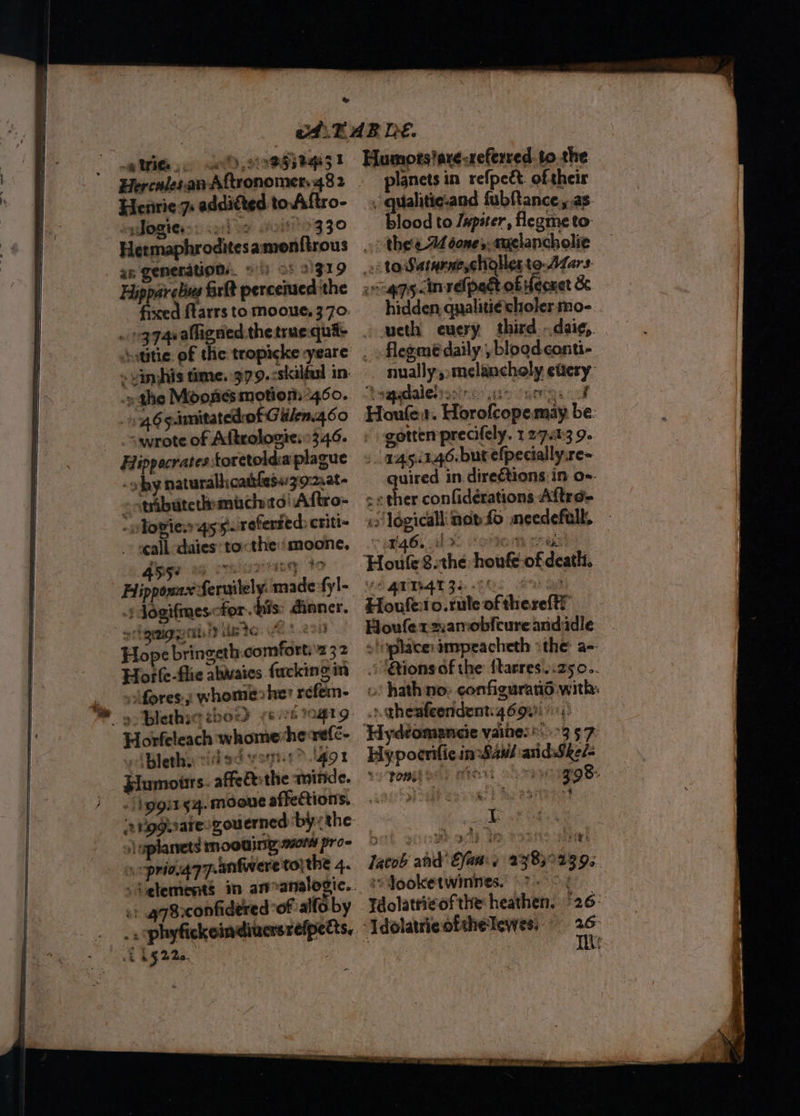 A TABLE.
Hercules an Astronomer. 482
Henrie 7. addicted to Astro-
logie. 330
Hermaphrodites a monstrous
generation. 319
Hipparchus first perceiued the
fixed starrs to mooue. 370.
374. assigned the true qua-
titie of the tropicke yeare
in his time. 379. skilful in
the Moones motion. 460.
imitated of Galen. 460
wrote of Astrologie. 346.
Hippocrates foretold a plague
by naturall causes.
attributeth much to Astro-
logie. 455. referred criti-
call daies to the moone.
455.
Hipponax seruilely made syl-
logismes for his dinner.
Hope bringeth comfort. 232
Horse-flie alwaies sucking in
sores, whome her resem-
bleth. 419
Horseleach whome he rese-
bleth. 491
Humours affect the minde.
154. mooue affections.
are gouerned by the
planets moouing
prio. 477. answere to the 4.
elements in an analogie.
478. considered of also by
phyficke in diuers respects.
522.
Humors are referred to the
planets in respect of their
qualitie and substance, as
blood to Iupiter, flegme to
the Moone, melancholie
to Saturne, choller to Mars
475. in respect of secret &
hidden qualitie choler mo-
ueth euery third daie,
flegme daily, blood conti-
nually, melancholy euery
Houses. Horoscope may be
gotten precisely. 127. 139.
145. 146. but especially re-
quired in directions: in o-
ther considerations Astro-
logicall not so needefull.
146.
House 8. the house of death.
411. 413.
House 10. rule of the rest
House 12. am obscure and idle
place impeacheth the a-
ctions of the starres. 250.
hath no configuratiō with
the ascendent. 469.
Hydromancie vaine. 357
Hypocrisie in Saul and Skel-
ton. 398.
I
Iacob and Esau. 238, 239.
looke twinnes.
Idolatrie of the heathen. 26
Idolatrie of the Iewes. 26